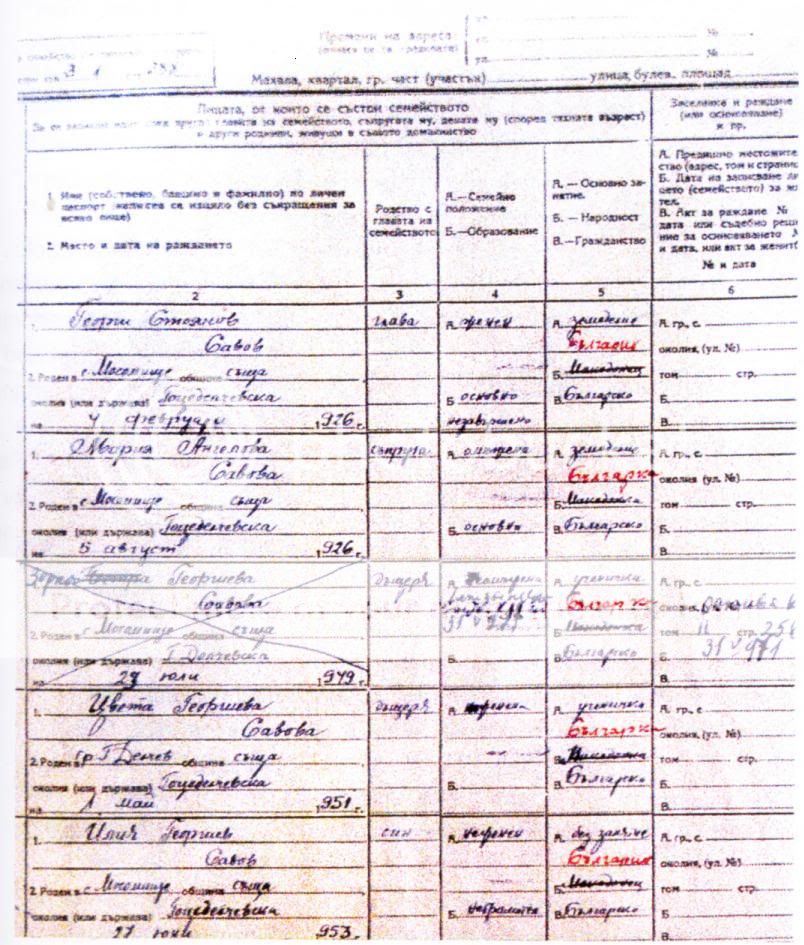 Промени на адреса
ул. №
ул. №
ул. №
Махала, квартал, гр. част (участък) улица, булев., площад
Лицата, от които се състои семейството
главата на семейството, съпругата му, децата му (според тяхната възраст)
и други роднини, живущи в същото домакинство
Заселване и раждане
(или осиновяване)
и пр.
1. Име (собствено, бащино и фамилно) по личен
паспорт написва се изцяло без съкращения за
всяко лице)
2. Място и дата на раждането
Родство с
главата на
семейството
А. — Семейно
положение
Б. — Образование
А. — Основно за-
нятие.
Б. — Народност
В. — Гражданство
А. Предишно местожите
ство (адрес, том и страниц
Б. Дата на записване ли
цето (семейството) за жи
тел.
В. Акт за раждане №
дата или съдебно реше
ние за осиновяването №
и дата, или акт за женитб
№ и дата
2 3 4 5 6
1. Георги Стоянов глава А. женен А. земеделие А. гр., с.
Савов Българин околия, (ул. №)
2. Роден в с. Мосомище община съща Б. Македонец том стр.
околия (или държава) Гоцеделчевска Б. основно В. Българско Б.
на 4 февруари 1926 г. незавършено В.
1. Мария Ангелова съпруга А. омъжена А. земеделие А. гр., с.
Савова Българка околия, (ул. №)
2. Роден в с. Мосомище община съща Б. Македонка том стр.
околия (или държава) Гоцеделчевска Б. основно В. Българско Б.
на 5 август 1926 г. В.
Георгиева дъщеря А. А. ученичка А. гр., с.
Савова Българка околия, (ул. №)
2. Роден в с. Мосомище община съща 31 V 971 Б. Македонка том II стр. 256
околия (или държава) Г. Делчевска Б. В. Българско Б. 31 V 971
на 29 юли 1949 г. В.
1. Цвета Георгиева дъщеря А. неженен А. ученичка А. гр., с.
Савова Българка околия, (ул. №)
2. Роден в гр. Г. Делчев община съща Б. Македонка том стр.
околия (или държава) Гоцеделчевска Б. В. Българско Б.
на 1 май 1951 г. В.
1. Илич Георгиев син А. неженен А. без занятие А. гр., с.
Савов Българин околия, (ул. №)
2. Роден в с. Мосомище община съща Б. Македонец том стр.
околия (или държава) Гоцеделчевска Б. неграмотен В. Българско Б.
27 юни 953 г. В.